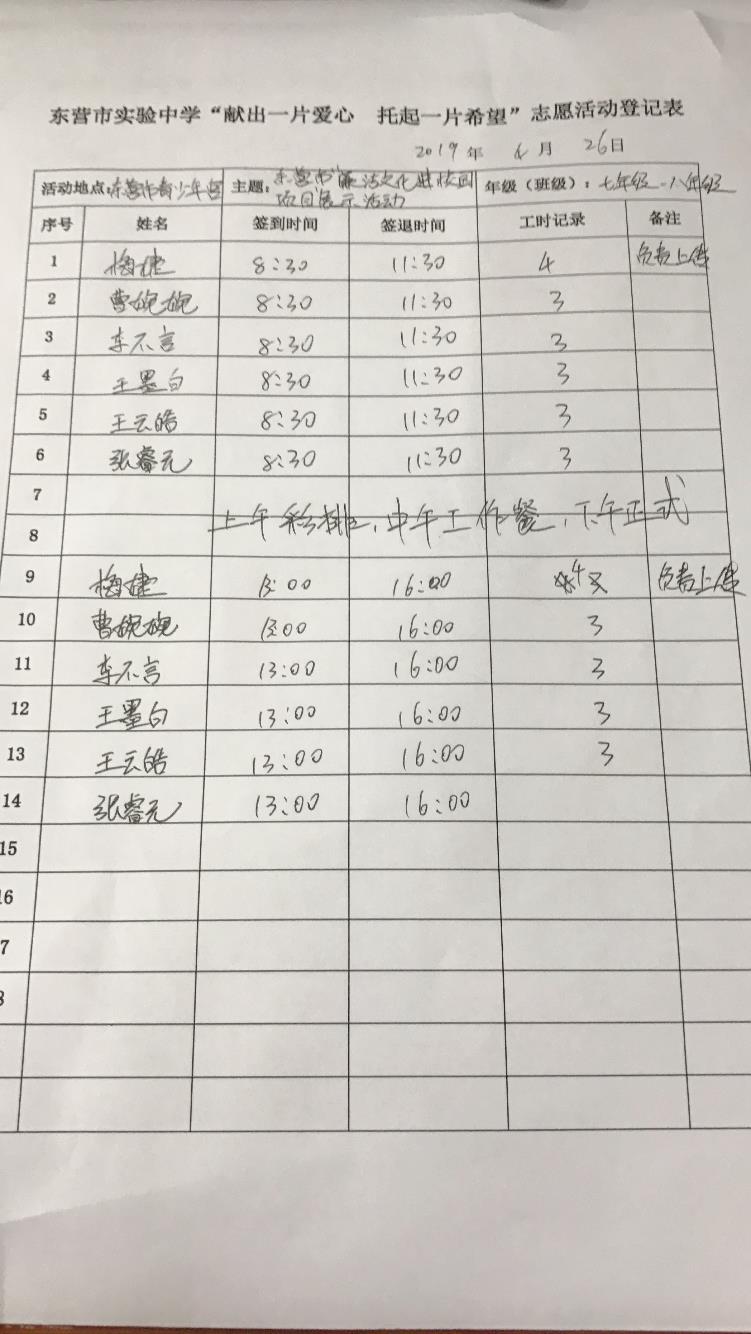 东营市实验中学“献出一片爱心 托起一片希望”志愿活动登记表
2019年 4月 26日
活动地点:东营市青少年宫 主题:东营市廉洁文化进校园项目展示活动 年级（班级）:七年级-八年级
序号 姓名 签到时间 签退时间 工时记录 备注
1 梅婕 8:30 11:30 4 负责上传
2 曹婉婉 8:30 11:30 3
3 李不言 8:30 11:30 3
4 王墨白 8:30 11:30 3
5 王云皓 8:30 11:30 3
6 张睿元 8:30 11:30 3
7
上午彩排,中午工作餐,下午正式
8
9 梅婕 13:00 16:00 4 负责上传
10 曹婉婉 13:00 16:00 3
11 李不言 13:00 16:00 3
12 王墨白 13:00 16:00 3
13 王云皓 13:00 16:00 3
14 张睿元 13:00 16:00
15
16
7
8